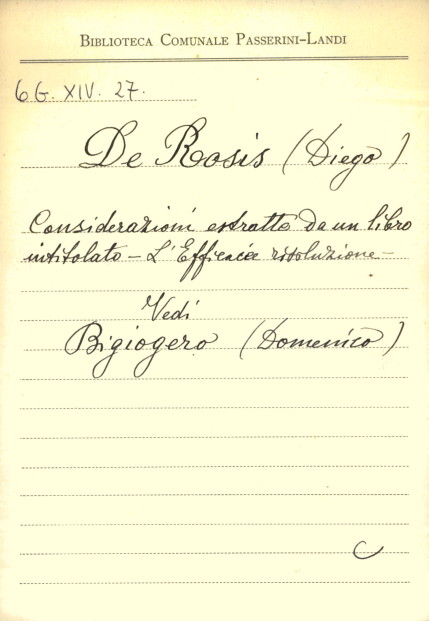 BIBLIOTECA COMUNALE PASSERINI-LANDI
6 G. XIV. 27.
De Rosis (Diego)
Considerazioni estratte da un libro
intitolato - L'Efficacia risoluzione -
Vedi
Bigiogero (Domenico)
C